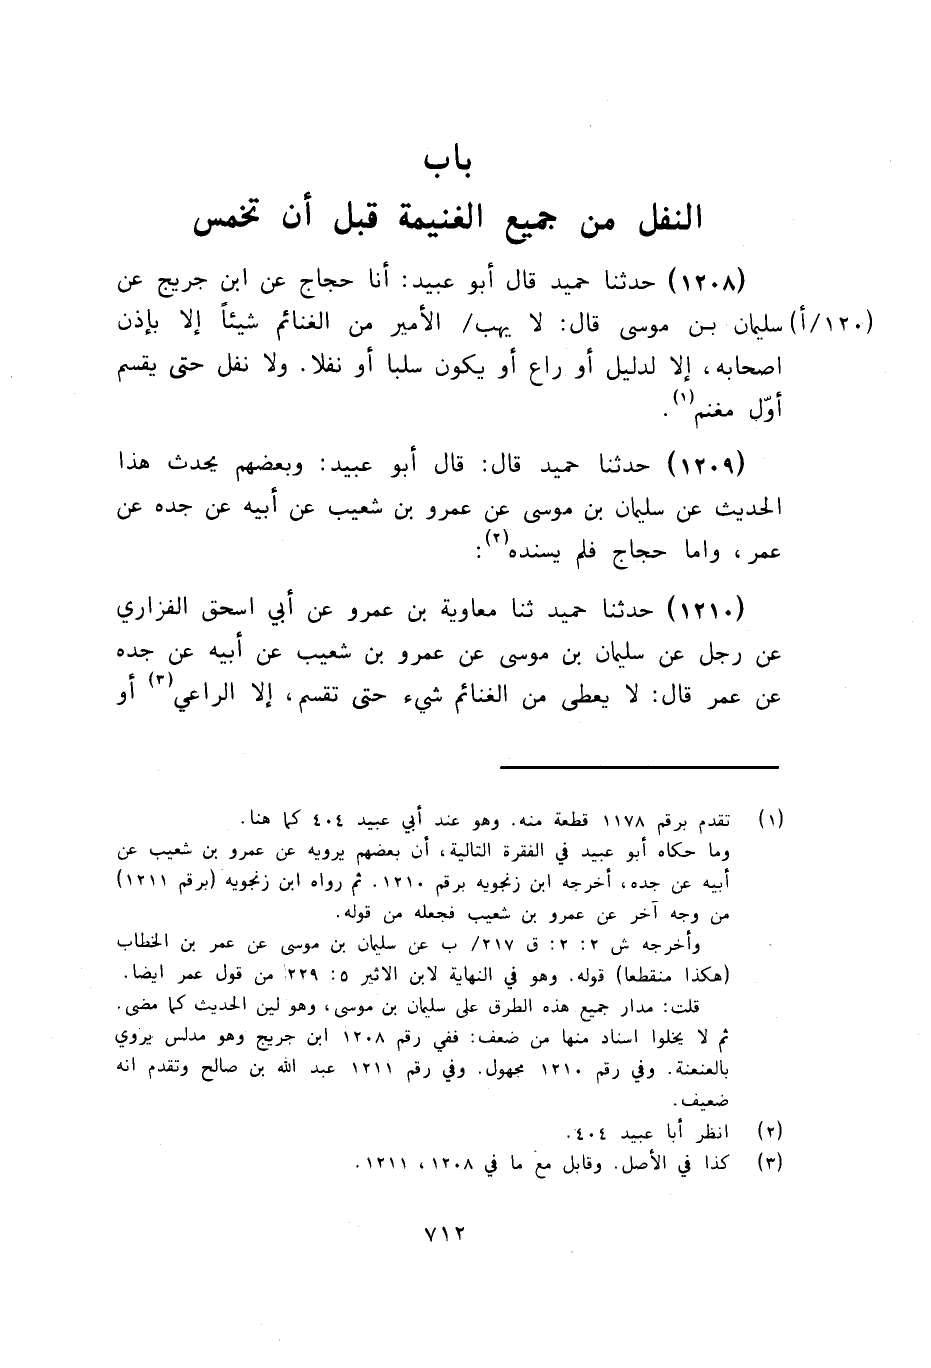 باب
النفل من جميع الغنيمة قبل أن تخمس
(١٢٠٨) حدثنا حميد قال أبو عبيد: أنا حجاج عن ابن جريج عن
(١٢٠/أ) سليمان بن موسى قال: لا يهب/ الأمير من الغنائم شيئاً إلا بإذن
اصحابه، إلا لدليل أو راع أو يكون سلبا أو نفلا. ولا نفل حتى يقسم
أوّل مغنم(١).
(١٢٠٩) حدثنا حميد قال: قال أبو عبيد: وبعضهم يحدث هذا
الحديث عن سليمان بن موسى عن عمرو بن شعيب عن أبيه عن جده عن
عمر، واما حجاج فلم يسنده(٢):
(١٢١٠) حدثنا حميد ثنا معاوية بن عمرو عن أبي اسحق الفزاري
عن رجل عن سليمان بن موسى عن عمرو بن شعيب عن أبيه عن جده
عن عمر قال: لا يعطى من الغنائم شيء حتى تقسم، إلا الراعي(٣) أو
(١) تقدم برقم ١١٧٨ قطعة منه. وهو عند أبي عبيد ٤٠٤ كما هنا.
وما حكاه أبو عبيد في الفقرة التالية، أن بعضهم يرويه عن عمرو بن شعيب عن
أبيه عن جده، أخرجه ابن زنجويه برقم ١٢١٠. ثم رواه ابن زنجويه (برقم ١٢١١)
من وجه آخر عن عمرو بن شعيب فجعله من قوله.
وأخرجه ش ٢: ٢: ق ٢١٧/ ب عن سليمان بن موسى عن عمر بن الخطاب
(هكذا منقطعا) قوله. وهو في النهاية لابن الاثير ٥: ٢٢٩ من قول عمر ايضا.
قلت: مدار جميع هذه الطرق على سليمان بن موسى، وهو لين الحديث كما مضى.
ثم لا يخلوا اسناد منها من ضعف: ففي رقم ١٢٠٨ ابن جريج وهو مدلس يروي
بالعنعنة. وفي رقم ١٢١٠ مجهول. وفي رقم ١٢١١ عبد الله بن صالح وتقدم انه
ضعيف.
(٢) انظر أبا عبيد ٤٠٤.
(٣) كذا في الأصل. وقابل مع ما في ١٢٠٨، ١٢١١.
٧١٢